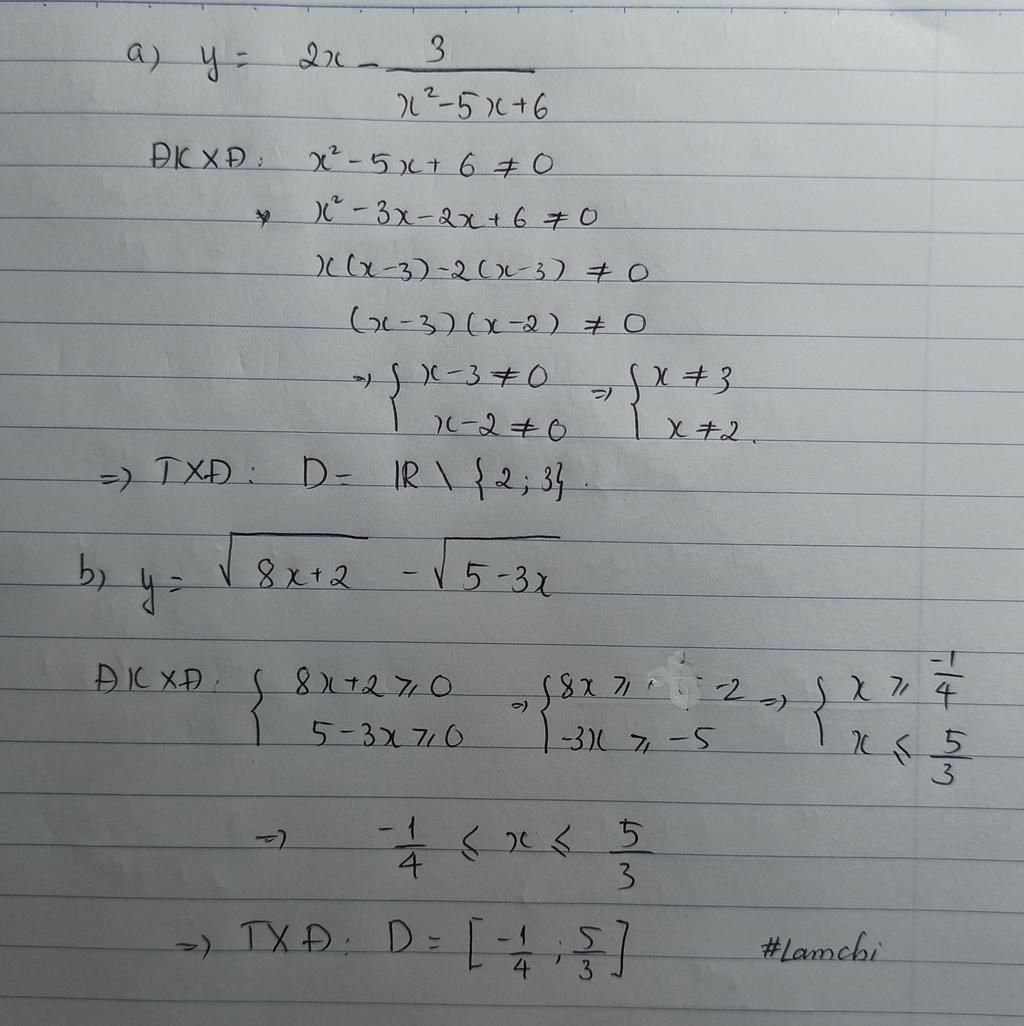 a) y = 2x - 3/(x²-5x+6)
ĐKXĐ: x² - 5x + 6 ≠ 0
x² - 3x - 2x + 6 ≠ 0
x(x-3) - 2(x-3) ≠ 0
(x-3)(x-2) ≠ 0
=> { x-3 ≠ 0 => { x ≠ 3
x-2 ≠ 0 x ≠ 2.
=> TXĐ: D = ℝ \ {2; 3}.
b) y = √(8x+2) - √(5-3x)
ĐKXĐ: { 8x+2 ⩾ 0 => { 8x ⩾ -2 => { x ⩾ -1/4
5-3x ⩾ 0 -3x ⩾ -5 x ⩽ 5/3
=> -1/4 ⩽ x ⩽ 5/3
=> TXĐ: D = [-1/4; 5/3] #Lamchi